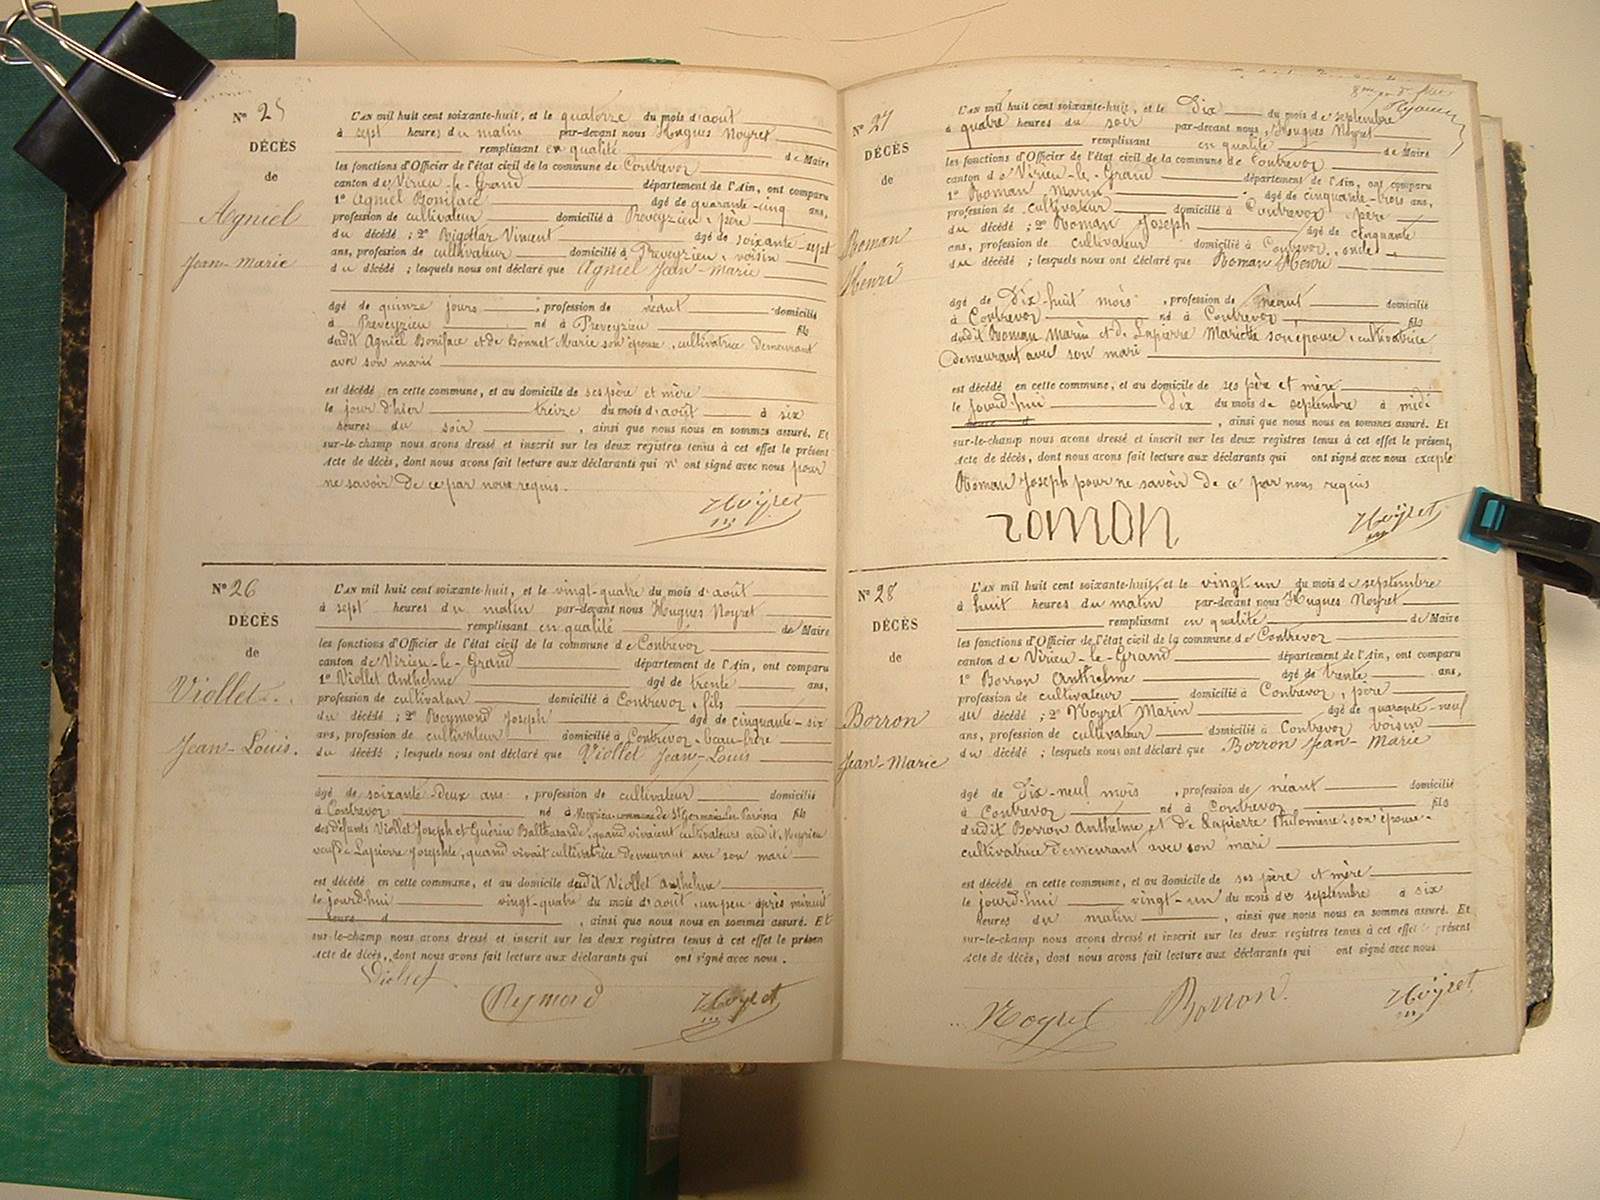 Nº 25
DÉCÈS
de
Agniel
Jean-Marie
L'AN mil huit cent soixante-huit, et le quatorze du mois d'août
à sept heures du matin par-devant nous Hugues Noyret
remplissant en qualité de Maire
les fonctions d'Officier de l'état civil de la commune de Contrevoz
canton de Virieu-le-Grand département de l'Ain, ont comparu
1º Agniel Boniface âgé de quarante-cinq ans,
profession de cultivateur domicilié à Preveyzieu, père
du décédé ; 2º Rigottaz Vincent âgé de soixante-sept
ans, profession de cultivateur domicilié à Preveyzieu, voisin
du décédé ; lesquels nous ont déclaré que Agniel Jean-Marie
âgé de quinze jours, profession de néant domicilié
à Preveyzieu né à Preveyzieu fils
dudit Agniel Boniface et de Bonnet Marie son épouse, cultivatrice demeurant
avec son mari
est décédé en cette commune, et au domicile de ses père et mère
le jour d'hier treize du mois d'août à six
heures du soir, ainsi que nous nous en sommes assuré. Et
sur-le-champ nous avons dressé et inscrit sur les deux registres tenus à cet effet le présent
Acte de décès, dont nous avons fait lecture aux déclarants qui n'ont signé avec nous pour
ne savoir de ce par nous requis.
Noyret
Nº 26
DÉCÈS
de
Viollet
Jean-Louis.
L'AN mil huit cent soixante-huit, et le vingt-quatre du mois d'août
à sept heures du matin par-devant nous Hugues Noyret
remplissant en qualité de Maire
les fonctions d'Officier de l'état civil de la commune de Contrevoz
canton de Virieu-le-Grand département de l'Ain, ont comparu
1º Viollet Anthelme âgé de trente ans,
profession de cultivateur domicilié à Contrevoz, fils
du décédé ; 2º Reymond Joseph âgé de cinquante-six
ans, profession de cultivateur domicilié à Contrevoz, beau-frère
du décédé ; lesquels nous ont déclaré que Viollet Jean-Louis
âgé de soixante-deux ans, profession de cultivateur domicilié
à Contrevoz né à Meyrieu commune de St Germain les Paroisses fils
des défunts Viollet Joseph et Guérin Balthazarde, quand vivaient cultivateurs audit Meyrieu
veuf de Lapierre Josephte, quand vivait cultivatrice demeurant avec son mari
est décédé en cette commune, et au domicile dudit Viollet Anthelme
le jourd'hui vingt-quatre du mois d'août, un peu après minuit
heures d, ainsi que nous nous en sommes assuré. Et
sur-le-champ nous avons dressé et inscrit sur les deux registres tenus à cet effet le présen
Acte de décès, dont nous avons fait lecture aux déclarants qui ont signé avec nous.
Viollet
Reymond
Noyret
Nº 27
DÉCÈS
de
Roman
Henri
L'AN mil huit cent soixante-huit, et le Dix du mois de septembre
à quatre heures du soir par-devant nous, Hugues Noyret
remplissant en qualité de Maire
les fonctions d'Officier de l'état civil de la commune de Contrevoz
canton de Virieu-le-Grand département de l'Ain, ont comparu
1º Roman Marin âgé de cinquante-trois ans,
profession de cultivateur domicilié à Contrevoz père
du décédé ; 2º Roman Joseph âgé de cinquante
ans, profession de cultivateur domicilié à Contrevoz, oncle
du décédé ; lesquels nous ont déclaré que Roman Henri
âgé de Dix-huit mois, profession de néant domicilié
à Contrevoz né à Contrevoz fils
dudit Roman Marin et de Lapierre Mariette son épouse, cultivatrice
demeurant avec son mari
est décédé en cette commune, et au domicile de ses père et mère
le jourd'hui dix du mois de septembre à midi
heure et, ainsi que nous nous en sommes assuré. Et
sur-le-champ nous avons dressé et inscrit sur les deux registres tenus à cet effet le présent,
Acte de décès, dont nous avons fait lecture aux déclarants qui ont signé avec nous excepté
Roman Joseph pour ne savoir de ce par nous requis
roman
Noyret
Nº 28
DÉCÈS
de
Borron
Jean-Marie
L'AN mil huit cent soixante-huit, et le vingt-un du mois de septembre
à huit heures du matin par-devant nous Hugues Noyret
remplissant en qualité de Maire
les fonctions d'Officier de l'état civil de la commune de Contrevoz
canton de Virieu-le-Grand département de l'Ain, ont comparu
1º Borron Anthelme âgé de trente ans,
profession de cultivateur domicilié à Contrevoz, père
du décédé ; 2º Noyret Marin âgé de quarante-neuf
ans, profession de cultivateur domicilié à Contrevoz voisin
du décédé ; lesquels nous ont déclaré que Borron Jean-Marie
âgé de dix-neuf mois, profession de néant domicilié
à Contrevoz né à Contrevoz fils
dudit Borron Anthelme et de Lapierre Philomène son épouse
cultivatrice demeurant avec son mari
est décédé en cette commune, et au domicile de ses père et mère
le jourd'hui vingt-un du mois de septembre à six
heures du matin, ainsi que nous nous en sommes assuré. Et
sur-le-champ nous avons dressé et inscrit sur les deux registres tenus à cet effet le présent
Acte de décès, dont nous avons fait lecture aux déclarants qui ont signé avec nous
Noyret
Borron
Noyret